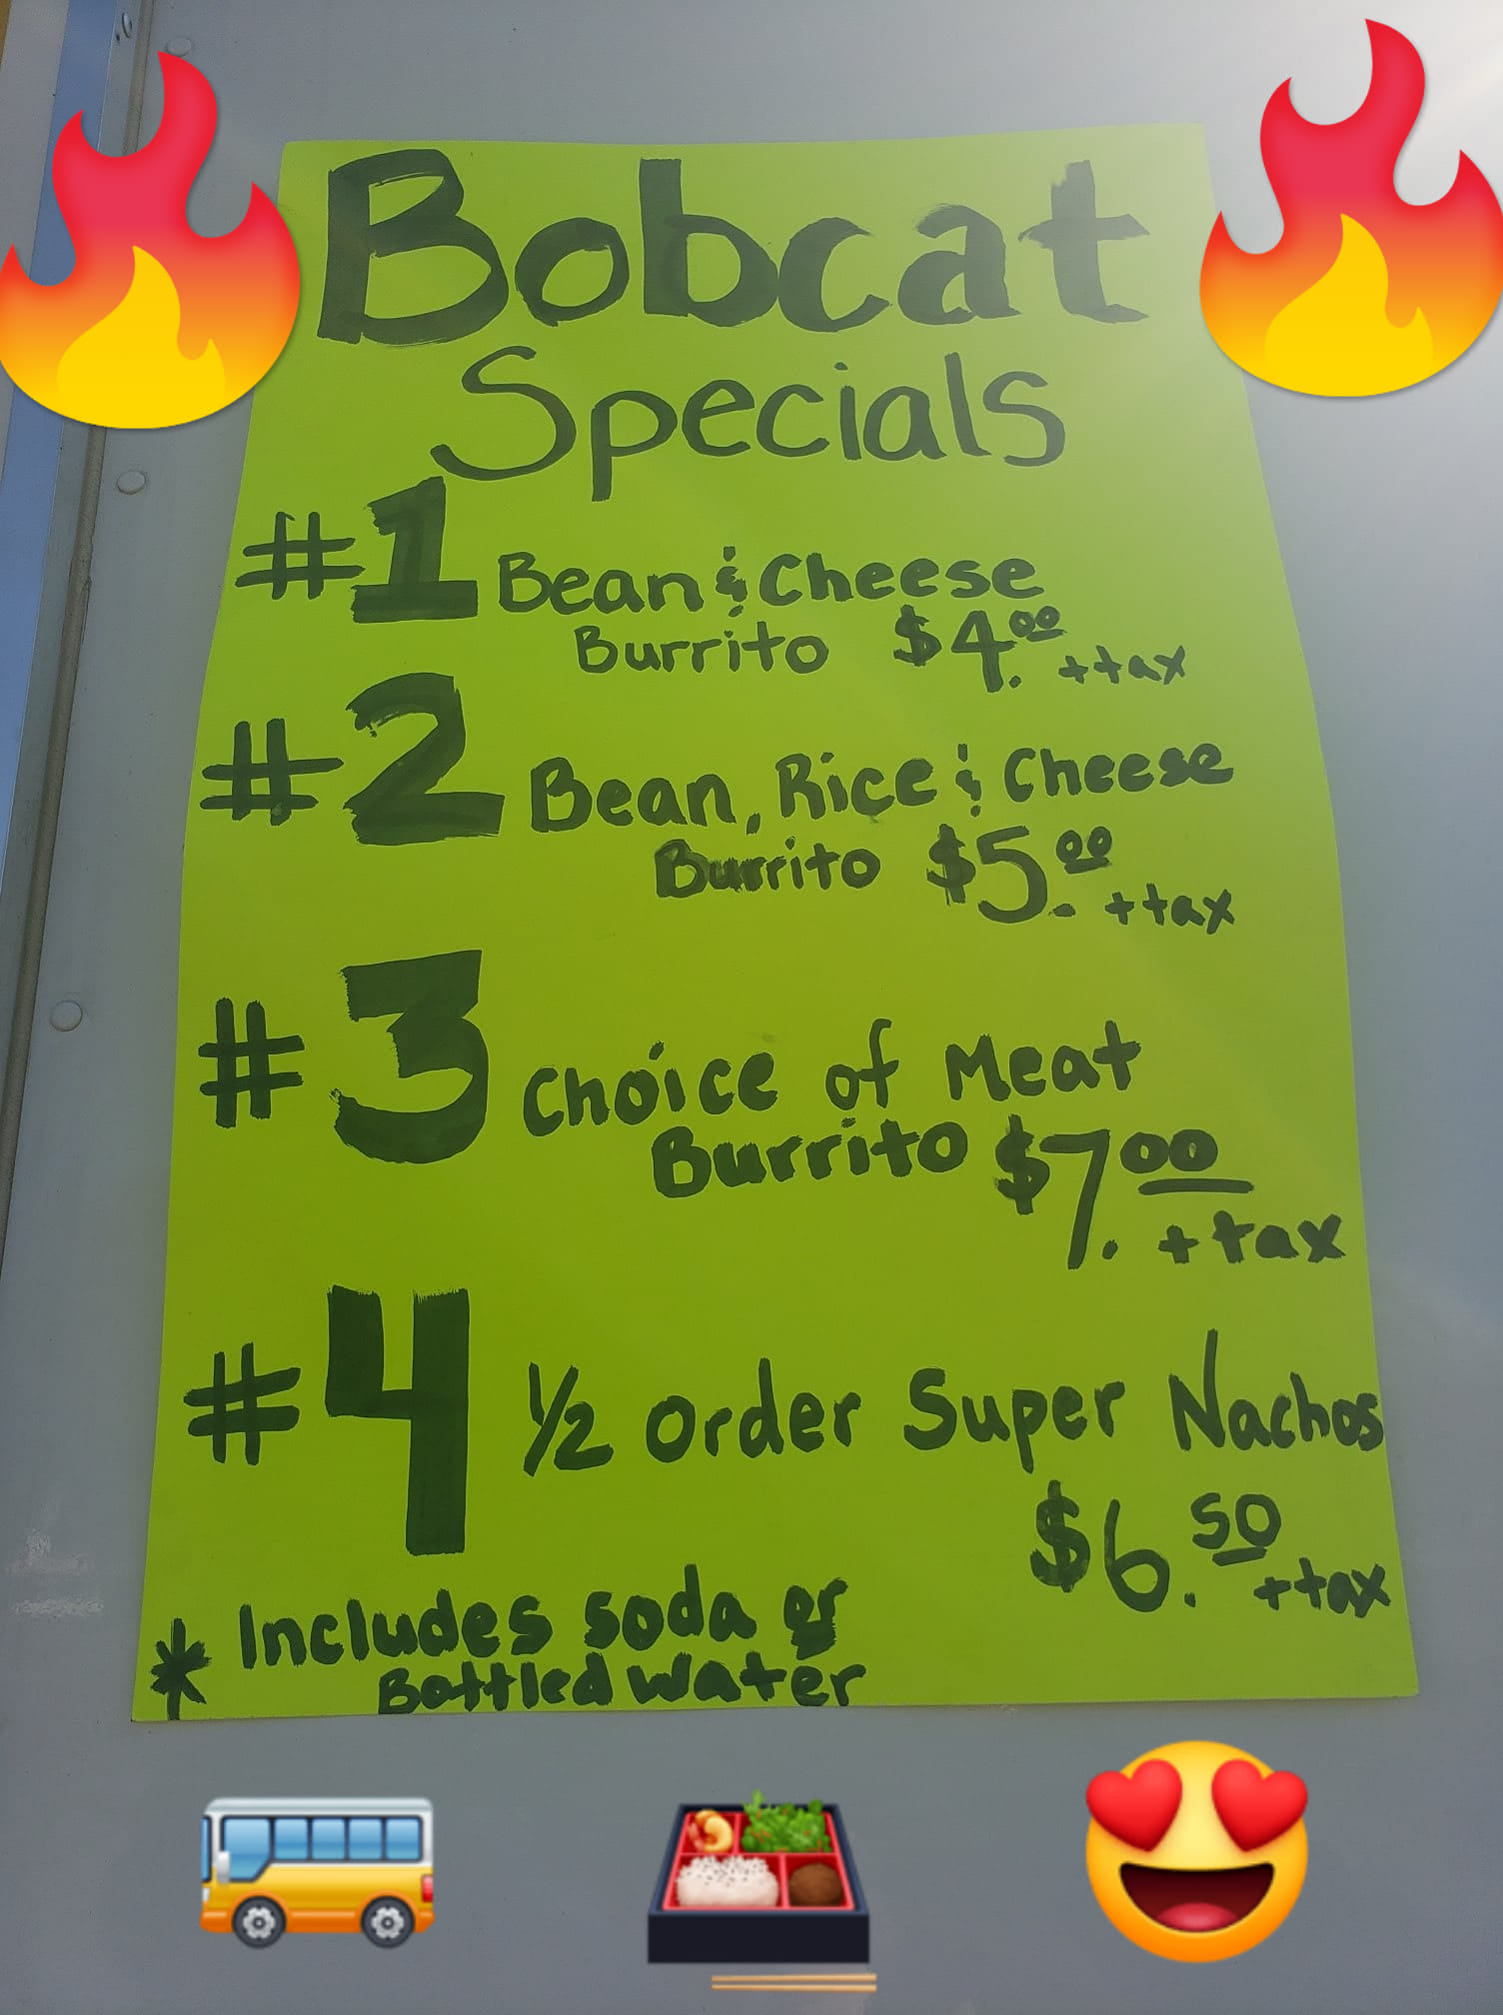 Bobcat
Specials
#1 Bean & Cheese
Burrito $4.00 + tax
#2 Bean, Rice & Cheese
Burrito $5.00 + tax
#3 Choice of Meat
Burrito $7.00
+ tax
#4 ½ Order Super Nachos
$6.50
+ tax
* Includes soda or
Bottled Water